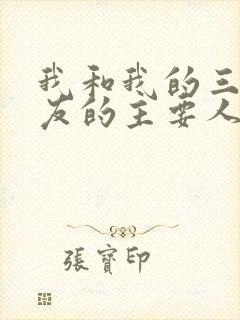 我和我的三
友的主要人
張寶印